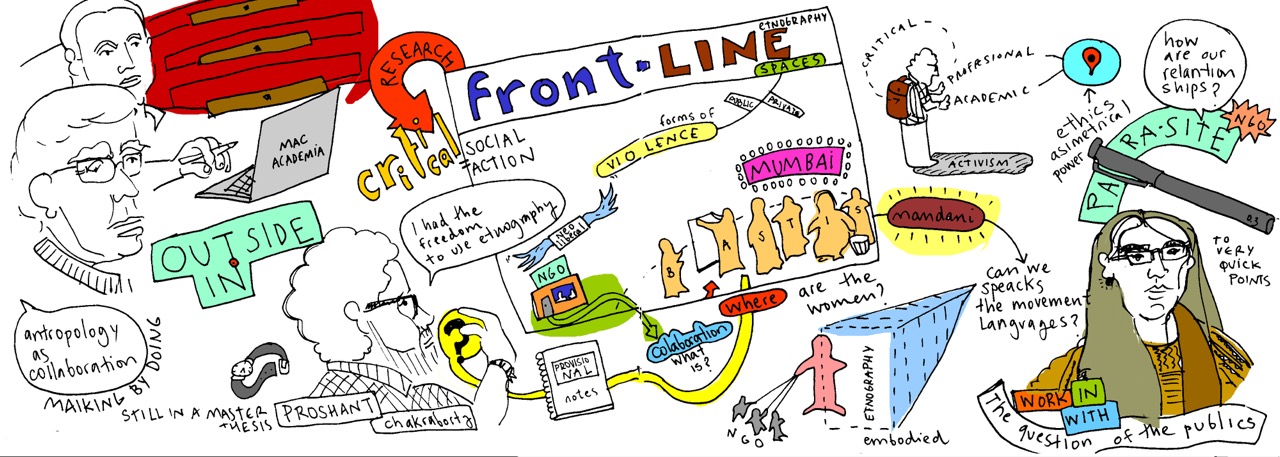 MAC
ACADEMIA
OUTSIDE
IN
antropology
as
collaboration
MAIKING BY DOING
STILL IN A MASTER
THESIS
PROSHANT
chakraborty
I had the
freedom
to use etnography
RESEARCH
critical
SOCIAL
ACTION
front-LINE
ETNOGRAPHY
SPACES
PUBLIC
PRIVATE
forms of
VIOLENCE
MUMBAI
NEO
liberal
NGO
B
A
S
T
I
S
PROVISIO
NAL
notes
colaboration
what
is?
where are the
women?
NGO
ETNOGRAPHY
embodied
mandani
can we
speacks
the movement
languages?
CRITICAL
PROFESIONAL
ACADEMIC
ACTIVISM
ethics
asimetrical
power
how
are our
relantion
ships?
PARA-SITE
NGO
0.3
TO
VERY
QUICK
POINTS
WORK IN
WITH
The question of the publics